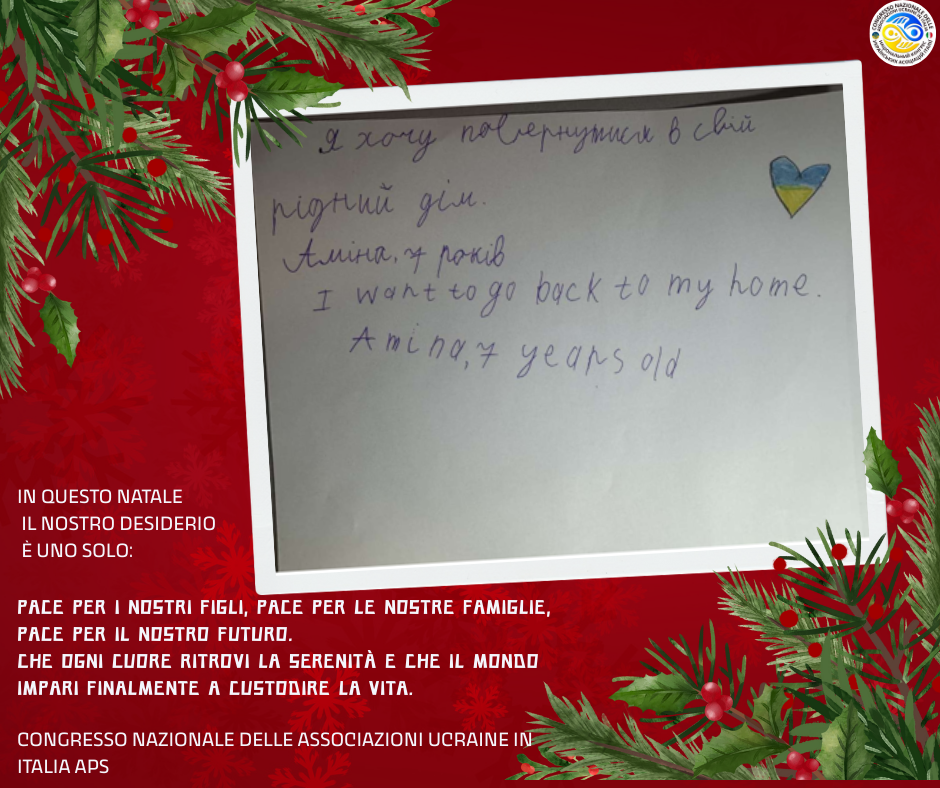 CONGRESSO NAZIONALE DELLE
ASSOCIAZIONI UCRAINE IN ITALIA
НАЦІОНАЛЬНИЙ КОНГРЕС
УКРАЇНСЬКИХ АСОЦІАЦІЙ ІТАЛІЇ
Я хочу повернутися в свій
рідний дім.
Аміна, 7 років
I want to go back to my home.
Amina, 7 years old
IN QUESTO NATALE
IL NOSTRO DESIDERIO
È UNO SOLO:
PACE PER I NOSTRI FIGLI, PACE PER LE NOSTRE FAMIGLIE,
PACE PER IL NOSTRO FUTURO.
CHE OGNI CUORE RITROVI LA SERENITÀ E CHE IL MONDO
IMPARI FINALMENTE A CUSTODIRE LA VITA.
CONGRESSO NAZIONALE DELLE ASSOCIAZIONI UCRAINE IN
ITALIA APS